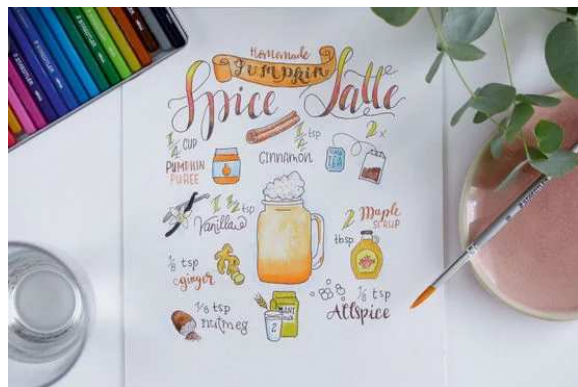 Homemade
Pumpkin
Spice Latte
1/4 CUP
PUMPKIN
PUREE
1/4 tsp
Cinnamon
2x
TEA
1 1/2 tsp
Vanilla
2 tbsp
Maple
SYRUP
1/8 tsp
ginger
1/8 tsp
nutmeg
2
1/8 tsp
Allspice